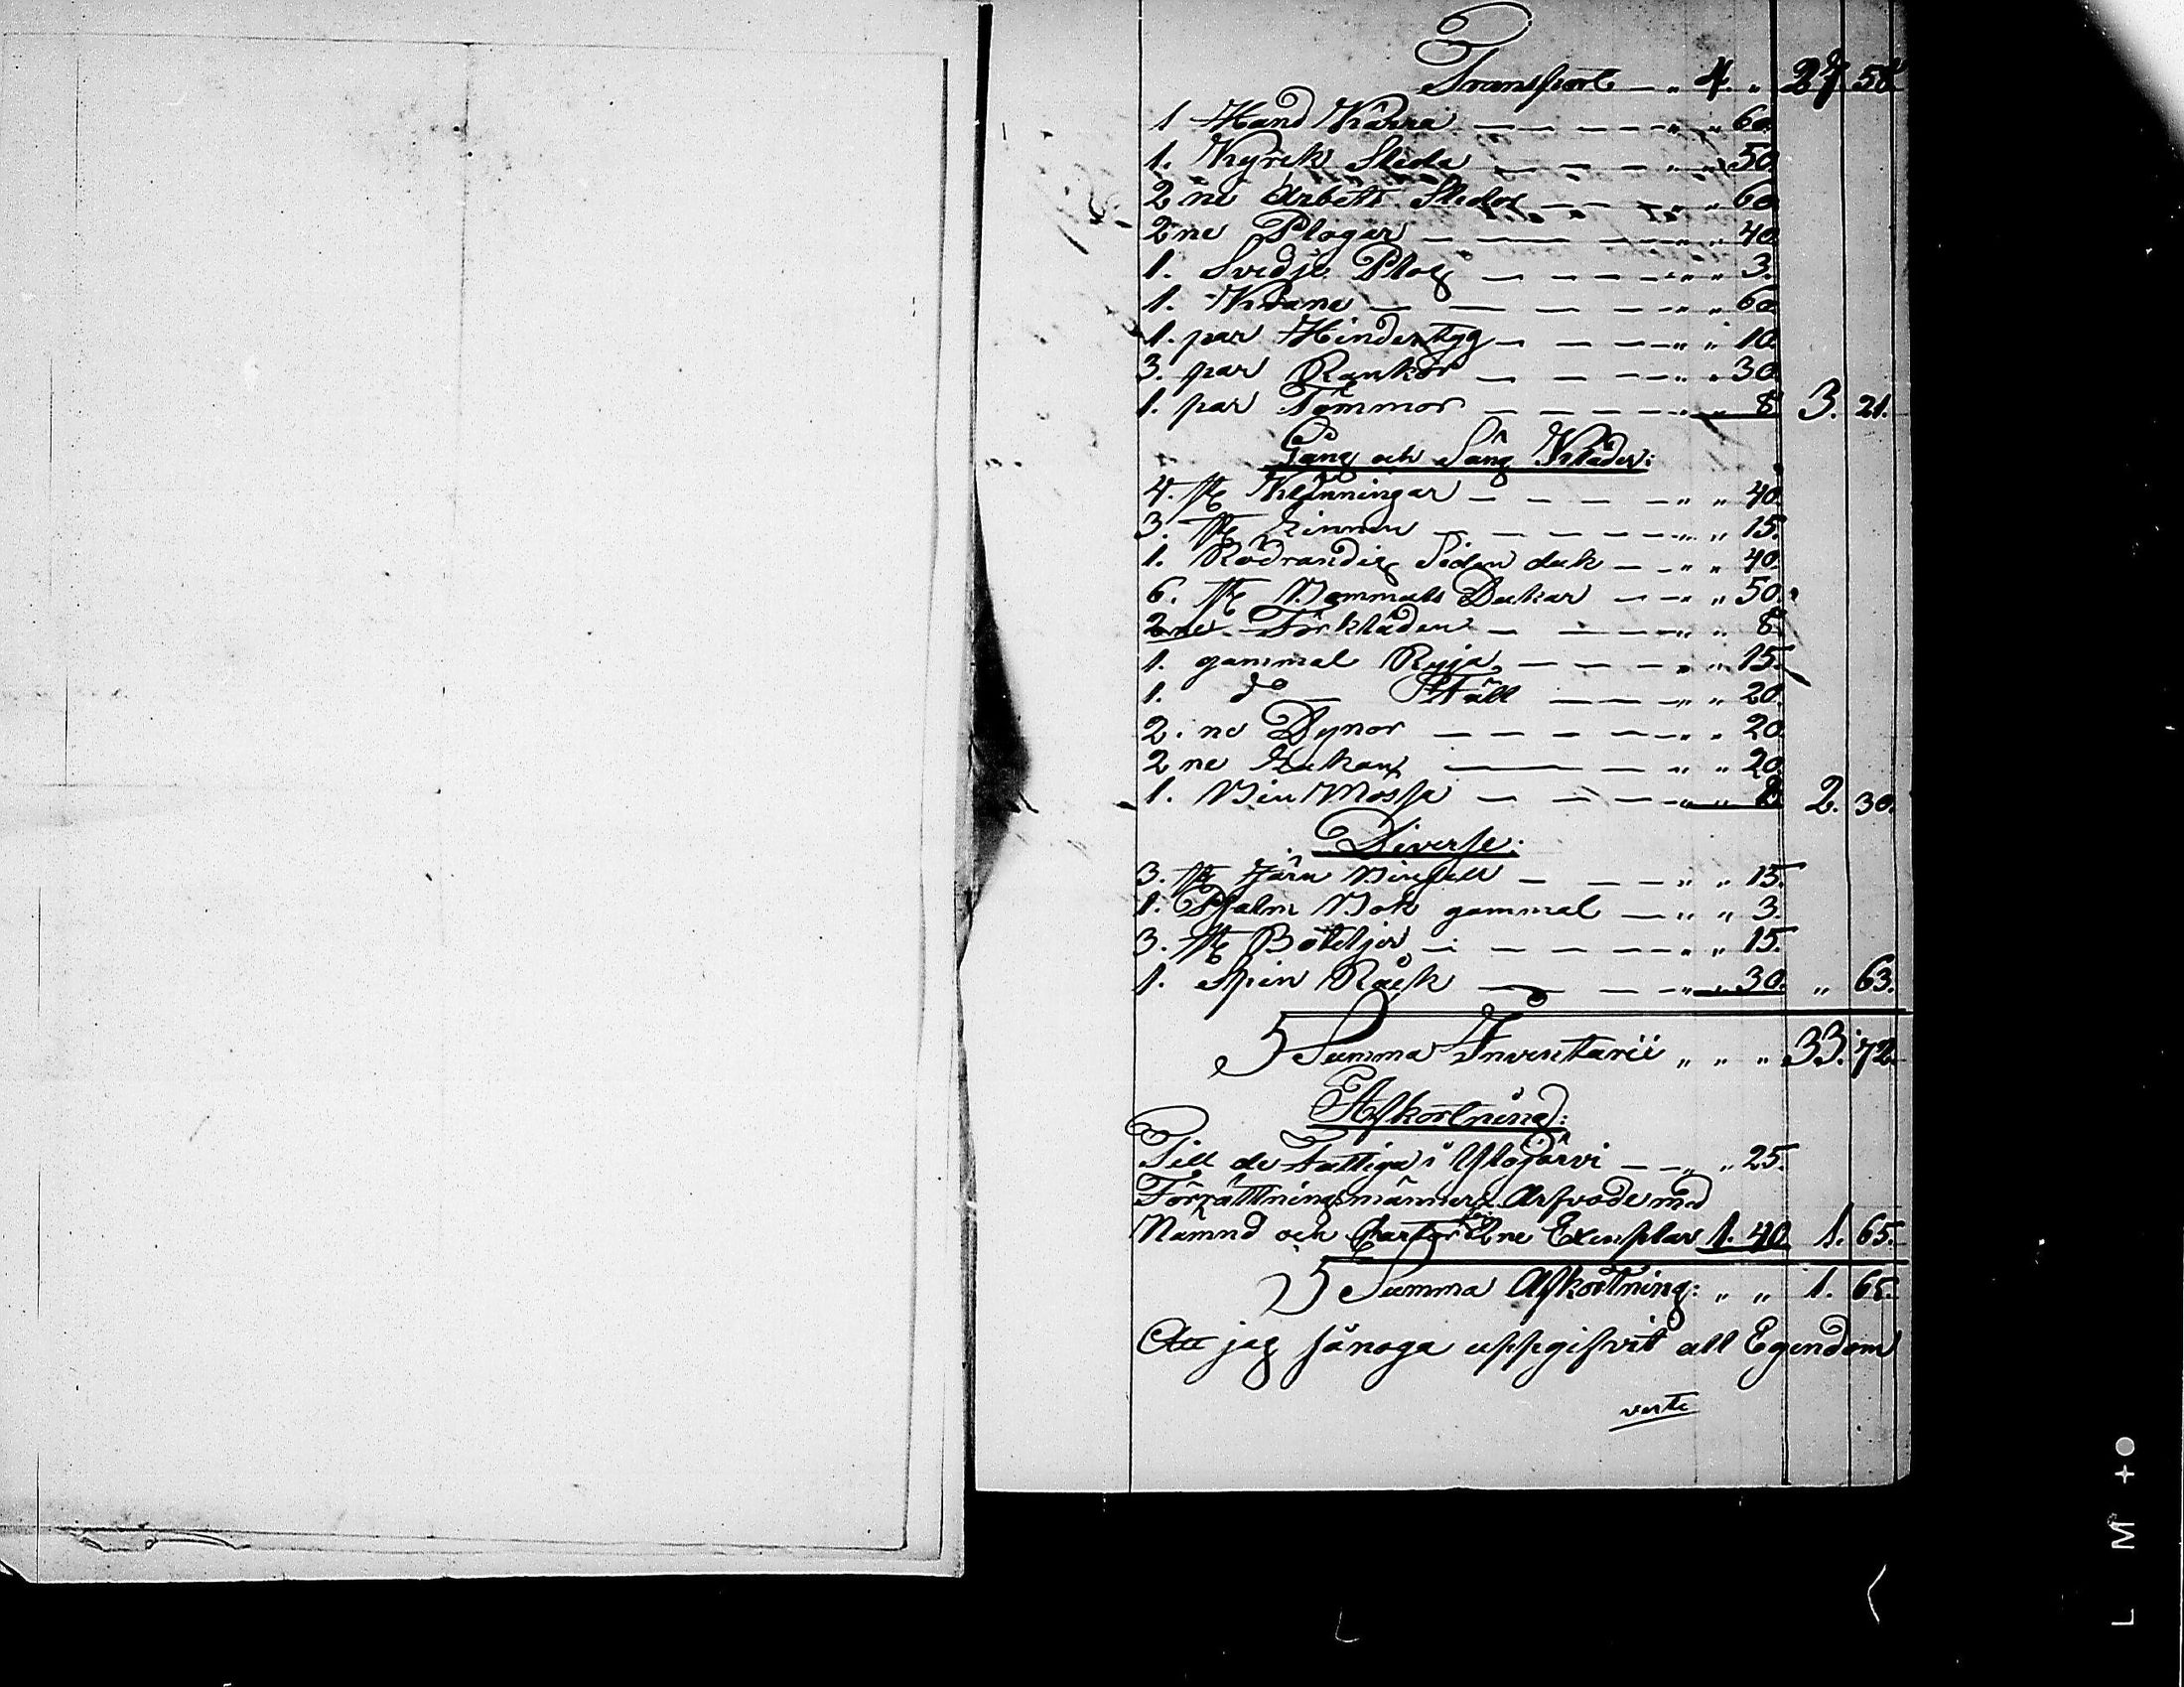 Transport — „ 4. „ 27. 58
1 Hand Kärra — — — — „ „ 60.
1. Kyrck Släda — — — „ „ 50
2 ne Arbets Slädor — — — „ „ 60
2 ne Plogar — — — — „ „ 40.
1. Svedje Plog — — — — „ „ 3.
1. — — — — „ „ 60
1. par Hindertyg — — — „ „ 10.
3. par Rankor — — — — „ „ 30
1. par Tömmor — — — — „ „ 8 3. 21.
Gång och Säng Kläder:
4. st Klänningar — — — — „ „ 40.
3. st Linnen — — — — „ „ 15.
1. Rödrandig Siden duk — — „ „ 40.
6. st Bommuls Dukar — — „ „ 50.
2 ne Förkläden — — — „ „ 8.
1. gammal Ryja — — — „ „ 15.
1. do — Fäll — — — „ „ 20.
2. ne Dynor — — — — „ „ 20
2 ne Lakan — — — „ „ 20.
1. Bin Mössa — — — — „ „ 2. 2. 30.
Diverse:
3. st Järn — — — „ „ 15.
1. Psalm Bok gammal — „ „ 3.
3. st Bouteljer — — — — „ „ 15.
1. Spin Råck — — — „ „ 30. „ 63.
Summa Inventarii „ „ „ 33. 72.
Afkortning:
Till de Fattiga i Ylöjärvi — — „ „ 25.
Förrättningsmännens Arfvode med
Nämnd och Charta för 2ne Exemplar 1. 40. 1. 65.
Summa Afkortning: „ „ 1. 65.
Att jag sånoga uppgifvit all Egendom
verte
L M +O